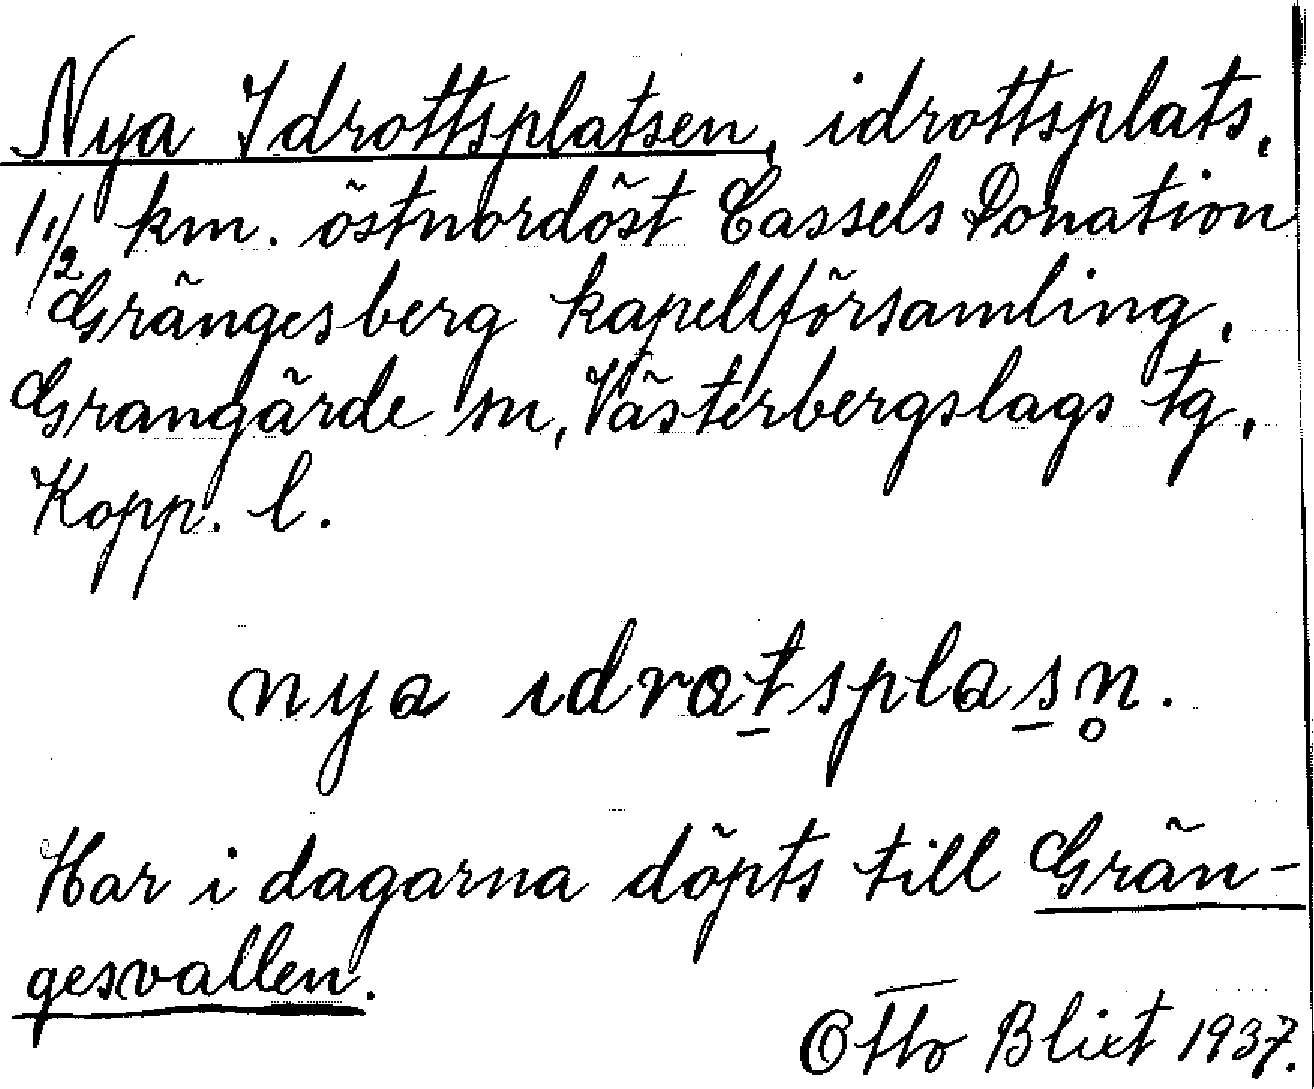 Nya Idrottsplatsen, idrottsplats,
1 1/2 km. östnordöst Cassels Donation
Grängesberg kapellförsamling,
Grangärde sn, Västerbergslags tg,
Kopp. l.
nya ıdrat̲splas̲n̥.
Har i dagarna döpts till Grän-
gesvallen.
Otto Blixt 1937.